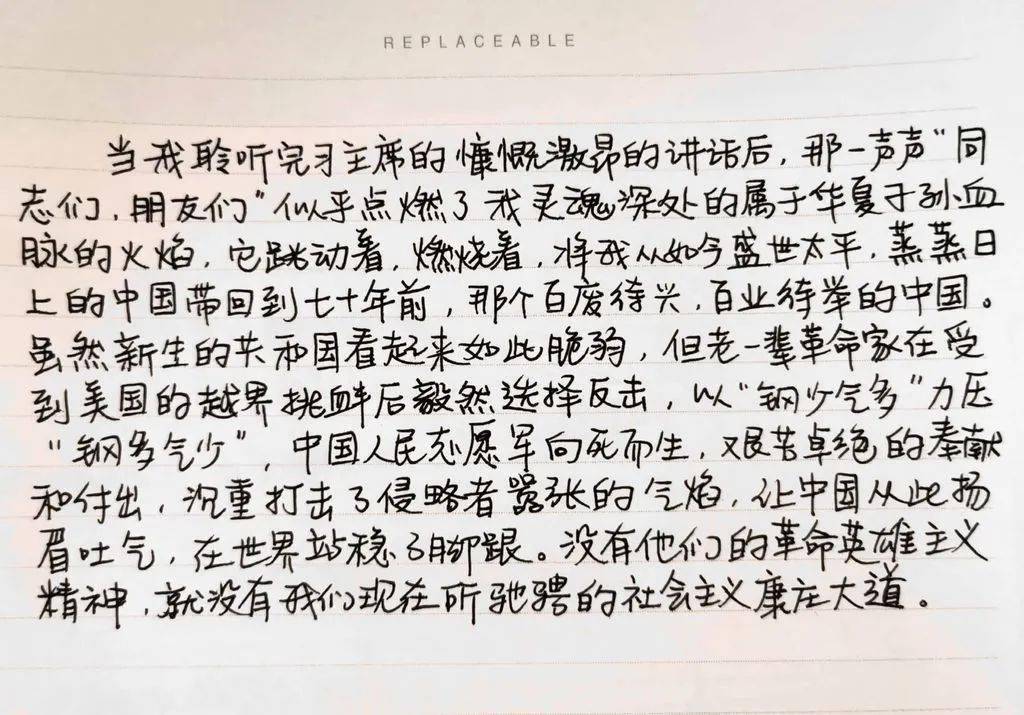 REPLACEABLE
当我聆听完习主席的慷慨激昂的讲话后，那一声声“同
志们，朋友们”似乎点燃了我灵魂深处的属于华夏子孙血
脉的火焰，它跳动着，燃烧着，将我从如今盛世太平，蒸蒸日
上的中国带回到七十年前，那个百废待兴，百业待举的中国。
虽然新生的共和国看起来如此脆弱，但老一辈革命家在受
到美国的越界挑衅后毅然选择反击，以“钢少气多”力压
“钢多气少”，中国人民志愿军向死而生，艰苦卓绝的奉献
和付出，沉重打击了侵略者嚣张的气焰，让中国从此扬
眉吐气，在世界站稳了脚跟。没有他们的革命英雄主义
精神，就没有我们现在所驰骋的社会主义康庄大道。